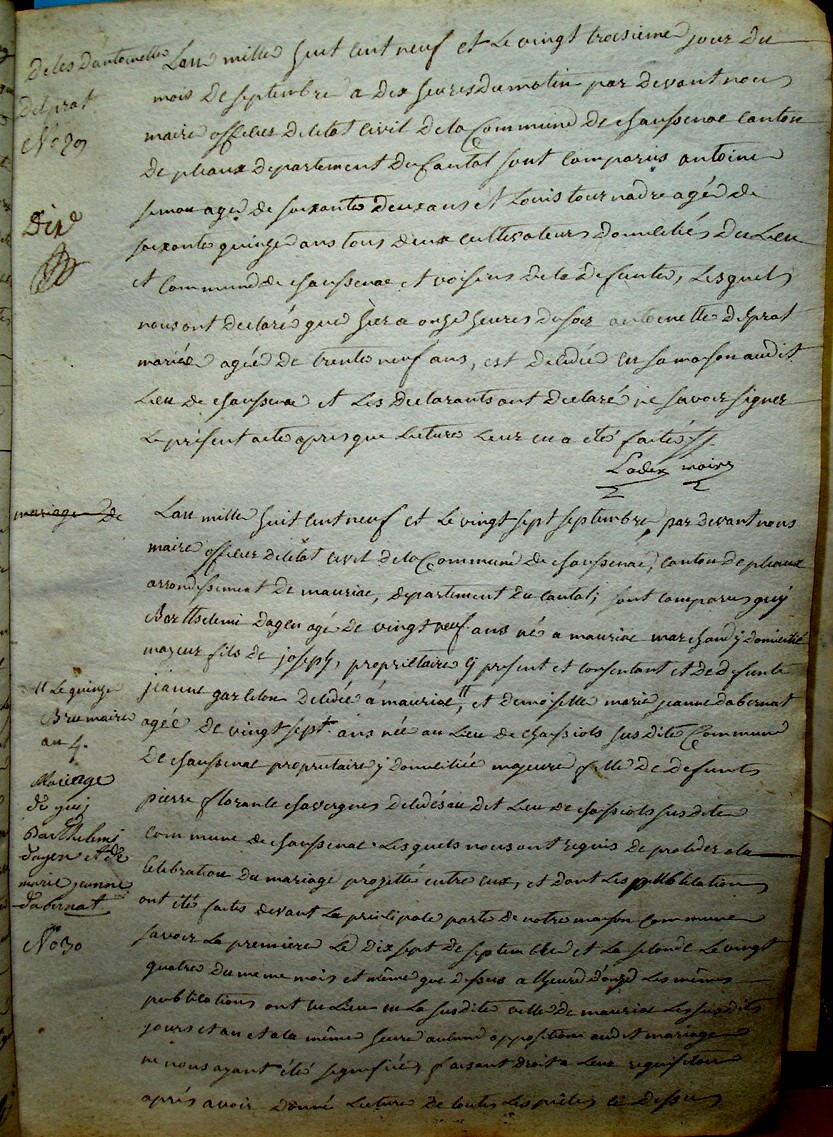 deces d'antoinette
Delprat
N° 29
Lan mille huit cent neuf et le vingt troisieme jour du
mois de septembre a dix heures du matin par devant nous
maire officier de letat civil de la Commune de chaussenac canton
de pleaux departement du Cantal sont comparus antoine
simon agé de soixante deux ans et Louis tournadre agé de
soixante quinze ans tous deux cultivateurs domiciliés du Lieu
et Commune de chaussenac et voisins de la defunte, Lesquels
nous ont declaré que hier a onze heures du soir antoinette delprat
mariée agée de trente neuf ans, est decedée en sa mason audit
Lieu de chaussenac et Les declarants ont declaré ne savoir signer
Le présent acte apres que Lecture Leur en a été faite
maire
mariage de
Lan mille huit cent neuf et Le vingt sept septembre par devant nous
maire officier de letat civil de la Commune de chaussenac, canton de pleaux
arrondissement de mauriac, departement du cantal; sont comparus guij
Barthelemi Dagen agé de vingt neuf ans né a mauriac marchand y domicilié
majeur fils de joseph, proprietaire y present et consentant et de defunte
jeanne gazleton decedée a mauriac", et demoiselle marie jeanne dabernat
" Le quinze
Brumaire
an 4.
agée de vingt sept ans née au Lieu de chassiols susdite Commune
de chaussenac proprietaire y domiciliée majeure fille de defunts
Mariage
de guij
Barthelemi
dagen et de
marie jeanne
dabernat
N° 30
pierre florante chavergnes decedés au dit Lieu de chassiols susdite
commune de chaussenac Lesquels nous ont requis de proceder a la
celebration du mariage projetté entre eux, et dont Les publications
ont été faites devant La principale porte de notre mason commune
savoir La premiere Le dix sept de septembre et La seconde Le vingt
quatre du meme mois et même que dessus a lheure d'onze Les mêmes
publications ont eu Lieu en La susdite ville de mauriac Les susdits
jours et an et a la même heure aucune opposition audit mariage
ne nous ayant été signifiée, faisant droit a Leur requisition
aprés avoir donné Lecture de toutes Les pieces ci dessus